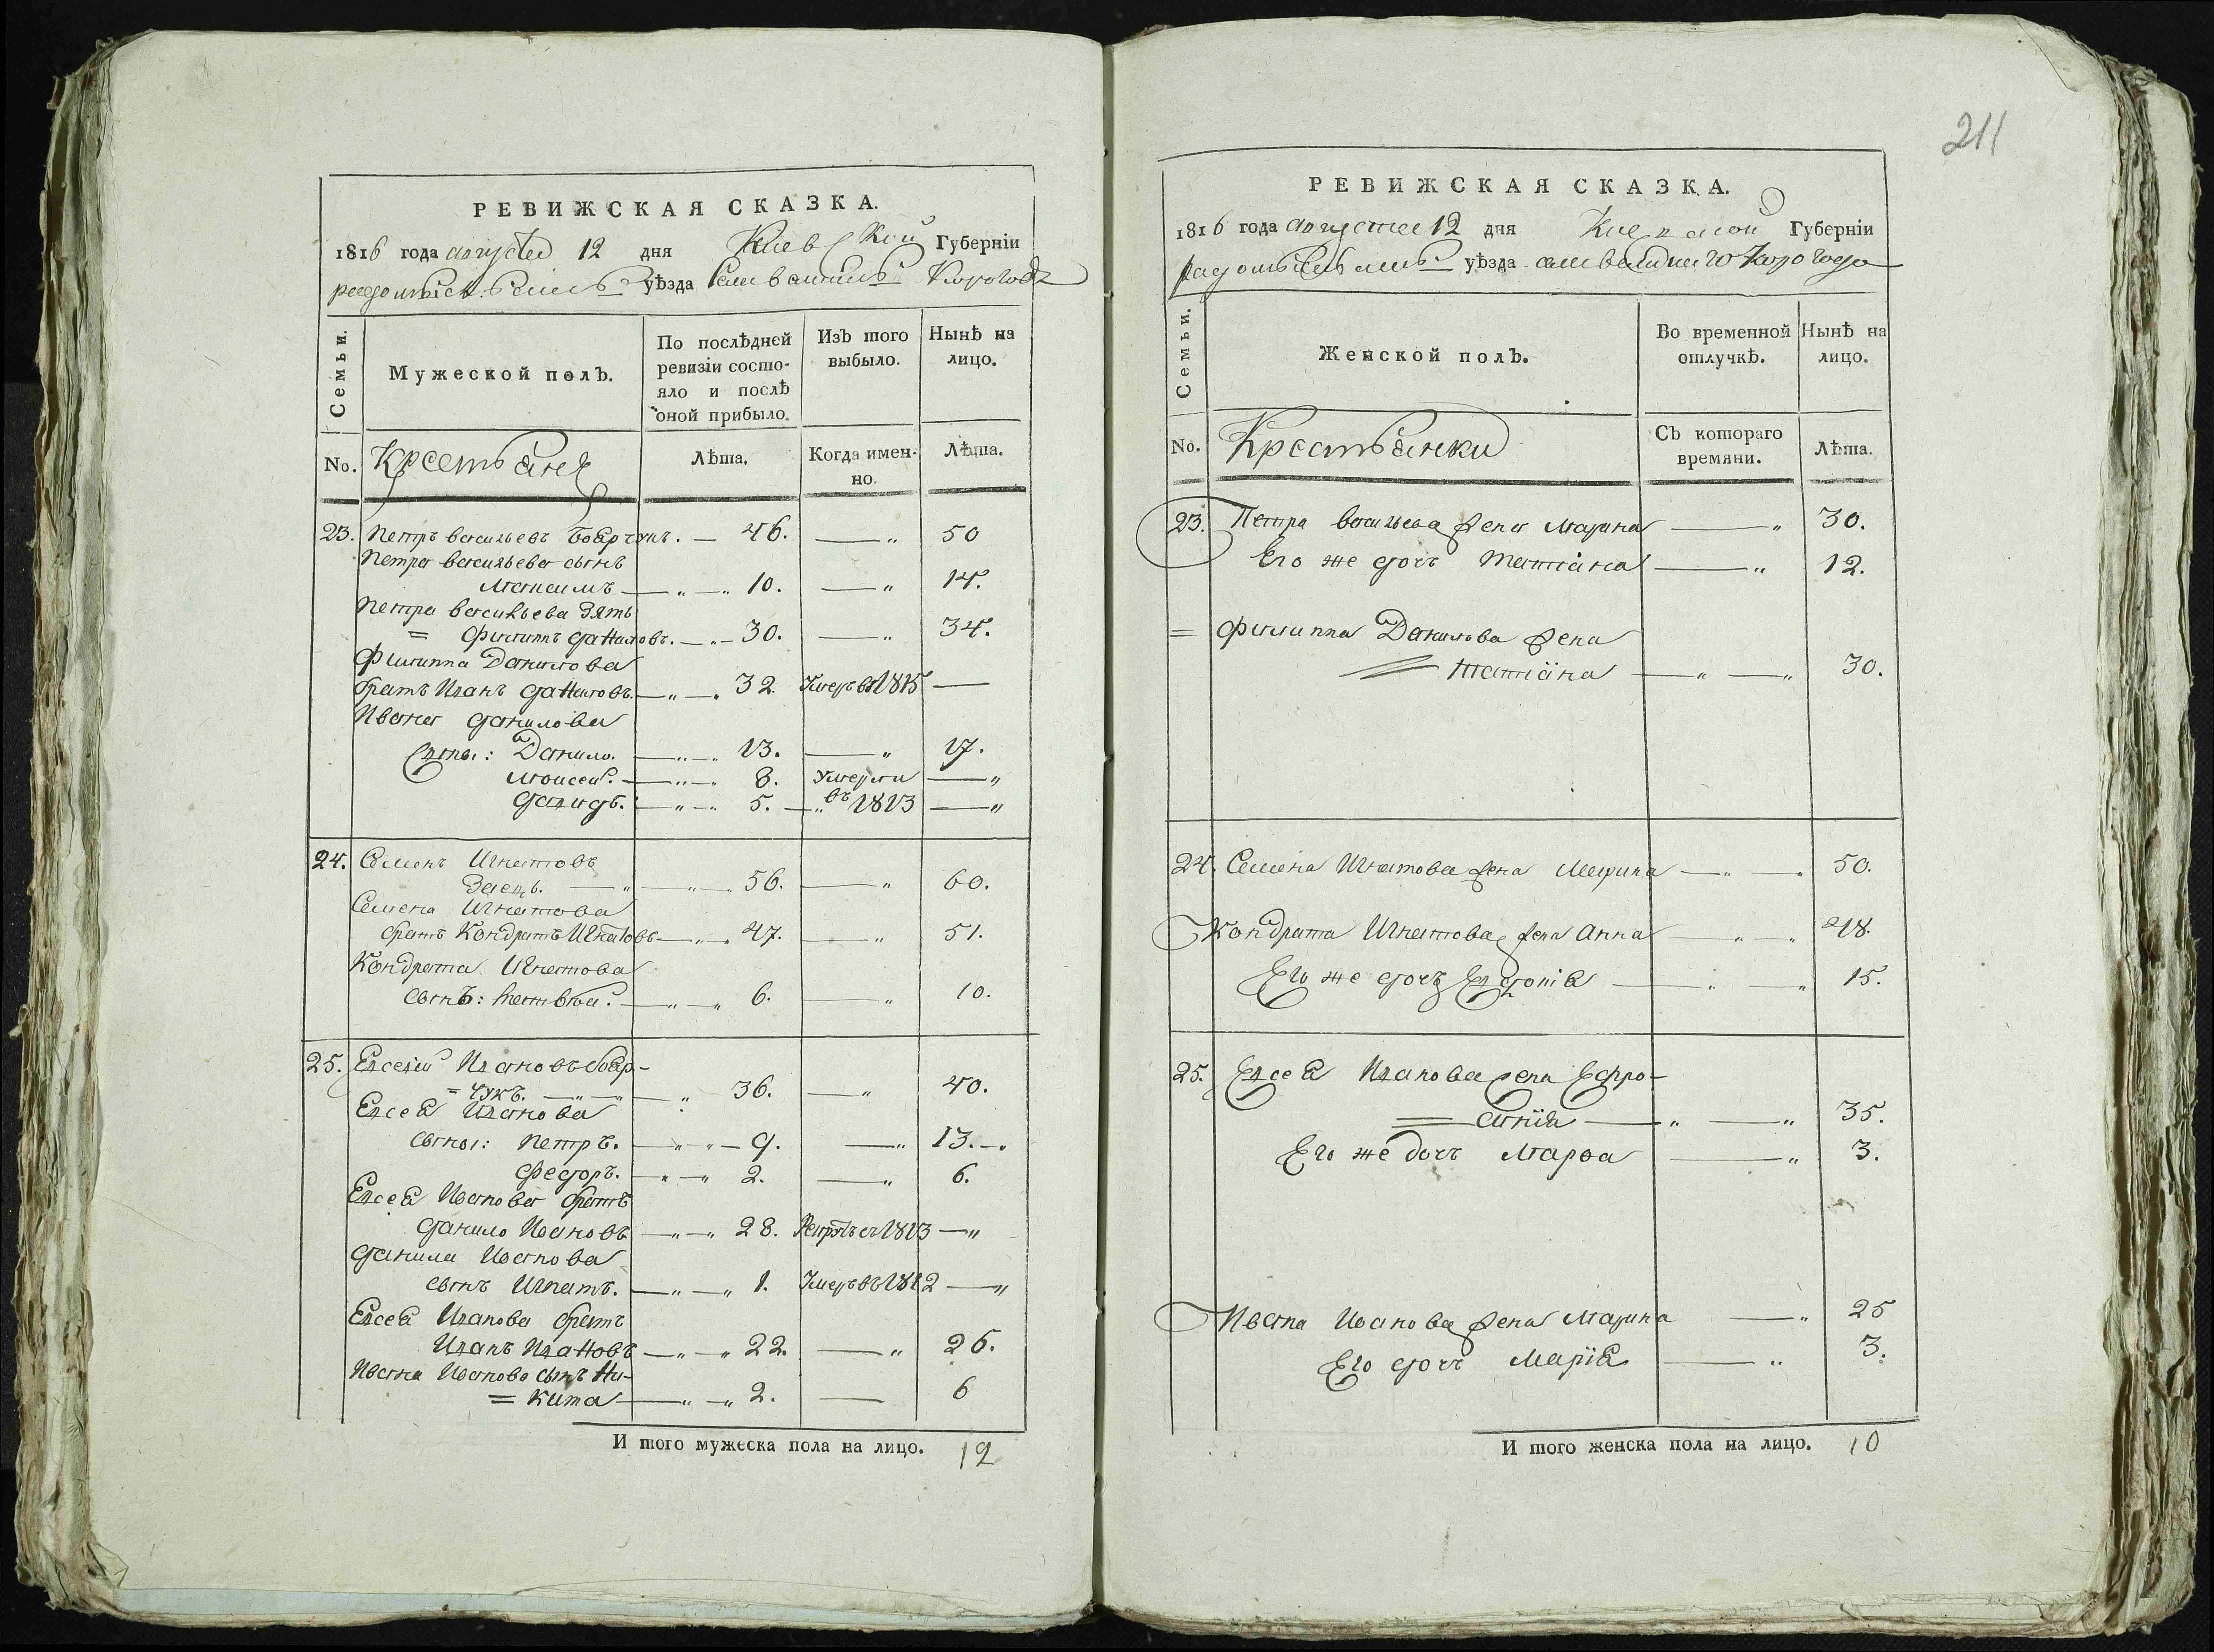 РЕВИЖСКАЯ СКАЗКА.
1816 года августа 12 дня Киевской Губерніи
уѣзда
Семьи.
Мужеской полЪ.
По послѣдней
ревизіи состо-
яло и послѣ
оной прибыло.
ИзЪ того
выбыло.
Нынѣ на
лицо.
No. Крестьяне
Лѣта.
Когда имен-
но.
Лѣта.
23. Петръ васильевъ — 46. — " 50
Петра васильева сынъ
Максимъ — " — " 10. — " 14.
Петра васильева зять
= филиппъ даниловъ. — " — 30. — " 34.
Филиппа Данилова
братъ Иванъ даниловъ. — " — 32. Умеръ въ 1815 —
Ивана данилова
сыны: Данило. — " — 13. — " 17.
Моисей. — " — 8. Умерли — "
давидъ. — " — " 5. — " въ 1813 — "
24. Семенъ Игнатовъ
Заецъ. — " — " — 56. — " 60.
Семена Игнатова
братъ Кондратъ Игнатовъ — " — 47. — " 51.
Кондрата Игнатова
сынъ: матвѣй. — " — " 6. — " 10.
25. Евсей Ивановъ бояр-
= чукъ. — " — " — " 36. — " 40.
Евсея Иванова
сыны: петръ. — " " — 9. — " 13. — "
федоръ. — " — " 2. — " 6.
Евсея Иванова братъ
данило Ивановъ — " — " 28. 1813 — "
данила Иванова
сынъ Игнатъ. — " — " 1. Умеръ въ 1812 — "
Евсея Иванова братъ
Иванъ Ивановъ — " — " 22. — " 26.
Ивана Иванова сынъ Ни-
= кита — " — " 2. — 6
И того мужеска пола на лицо. 12
211
РЕВИЖСКАЯ СКАЗКА.
1816 года августа 12 дня Киевской Губерніи
уѣзда
Семьи.
Женской полЪ.
Во временной
отлучкѣ.
Нынѣ на
лицо.
No. Крестьянки
СЪ котораго
времяни.
Лѣта.
23. Петра васильева жена Марина — " 30.
Его же дочъ татіана — " 12.
= филиппа Данилова жена
= татіана — " — " 30.
24. Семена Игнатова жена Марина — " — " 50.
Кондрата Игнатова жена Анна — " — " 48.
Его же дочъ — " — " 15.
25. Евсея Иванова жена Ефро-
= синія — " — " 35.
Его же дочъ Марѳа — " 3.
Ивана Иванова жена Марина — " 25
Его дочъ Марія — " 3.
И того женска пола на лицо. 10